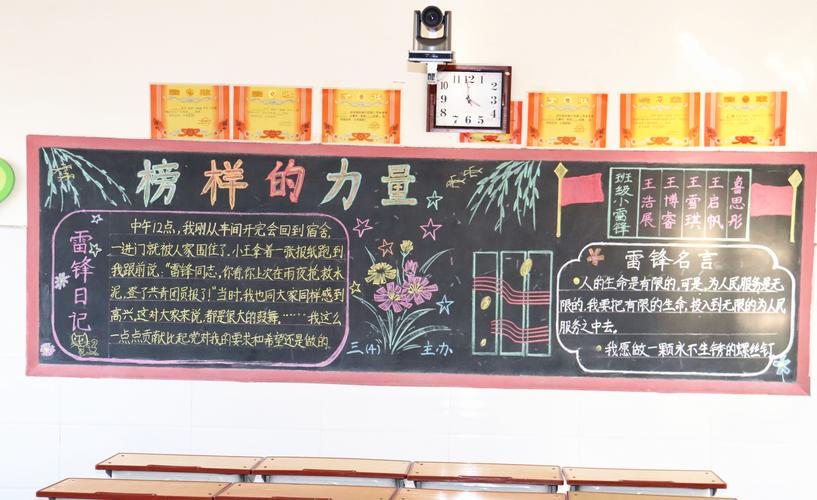 榜样的力量
雷锋日记
中午12点,我刚从车间开完会回到宿舍,
一进门就被人家围住了.小王拿着一张报纸跑到
我跟前说:"雷锋同志,你看,你上次在雨夜抢救水
泥,登了共青团员报了!"当时,我也同大家同样感到
高兴,这对大家来说,都是很大的鼓舞.……我这么
一点点贡献比起党对我的要求和希望还是做的
三(4) 主办
班级小雷锋
王浩展
王博睿
王雪琪
王启帆
鲁思彤
雷锋名言
人的生命是有限的,可是,为人民服务是无
限的,我要把有限的生命,投入到无限的为人民
服务之中去.
我愿做一颗永不生锈的螺丝钉
12
1
2
3
4
5
6
7
8
9
10
11